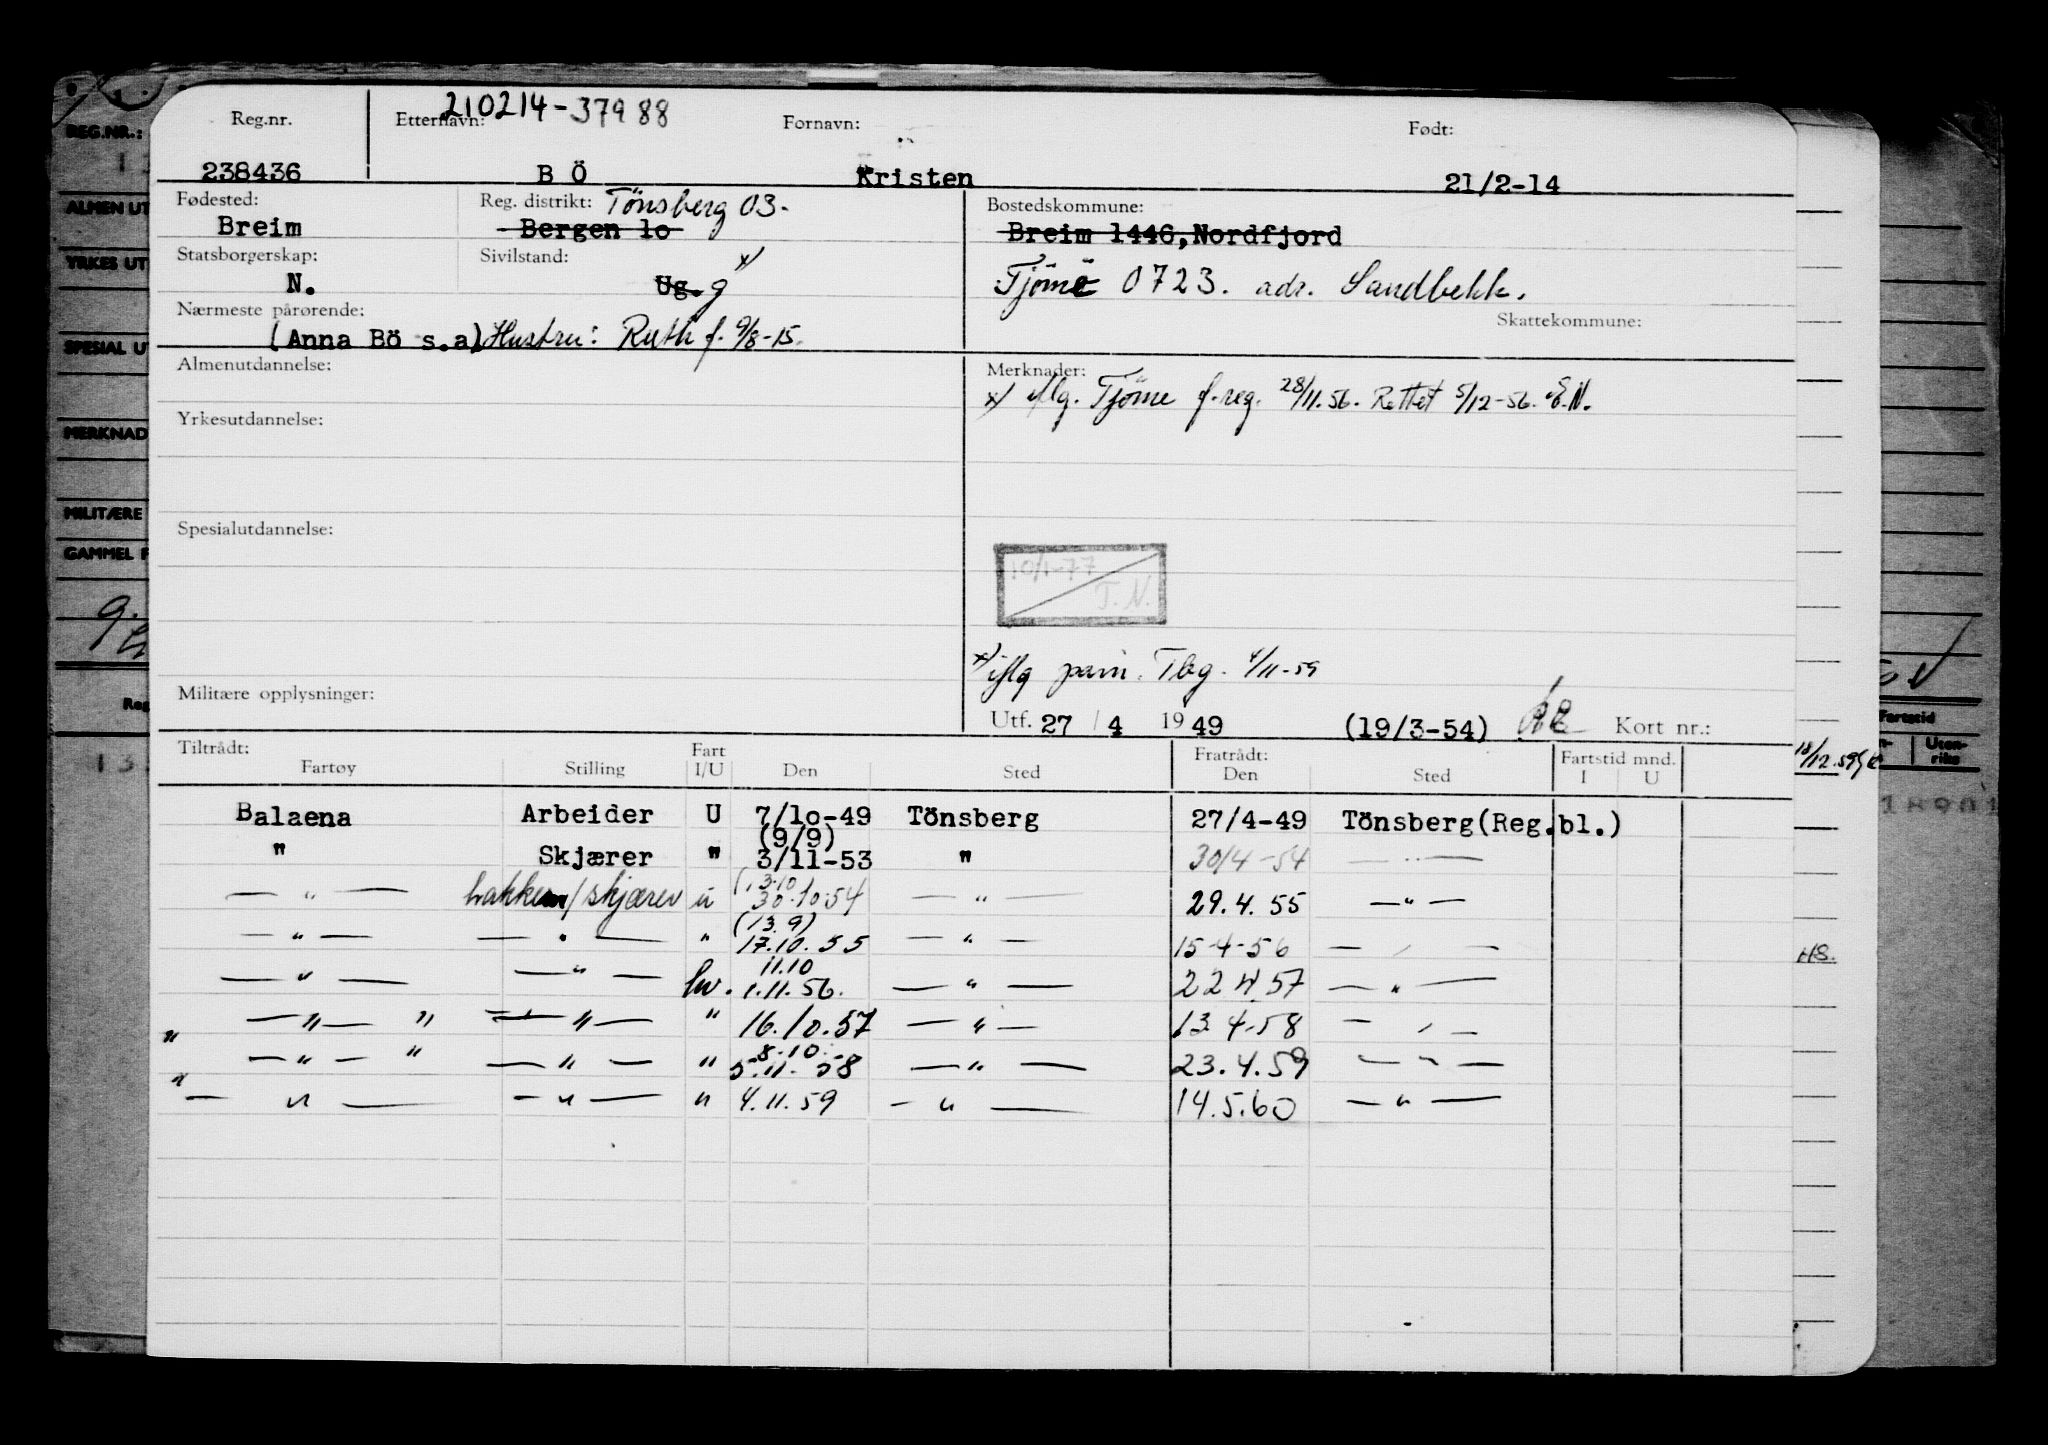 210214-37988
Reg.nr. Etternavn: Fornavn: Født:
238436 B Ö Kristen 21/2-14
Fødested: Reg. distrikt: Tönsberg 03. Bostedskommune:
Breim Bergen 1o Breim 1446, Nordfjord
Statsborgerskap: Sivilstand: x)
N. Ug. g Tjöme 0723. adr. Sandbekk.
Nærmeste pårørende: Skattekommune:
(Anna Bö s.a) Hustru: Ruth f. 9/8-15.
Almenutdannelse: Merknader:
x) iflg. Tjöme f.reg. 28/11.56. Rettet 5/12-56. E.N.
Yrkesutdannelse:
Spesialutdannelse:
10/1-77
T.N.
x) iflg Tbg. 4/11-59
Militære opplysninger:
Utf. 27 / 4 19 49 (19/3-54) Kort nr.:
Tiltrådt: Fart Fratrådt: Fartstid mnd.
Fartøy Stilling I/U Den Sted Den Sted I U
Balaena Arbeider U 7/1o-49 Tönsberg 27/4-49 Tönsberg(Reg.bl.)
(9/9)
" Skjærer " 3/11-53 " 30/4-54 — " —
(13.10)
— " — /skjærer u 30.10.54 — " — 29.4.55 — " —
(13.9)
— " — — " — " 17.10.55 — " — 15-4-56 — " —
11.10
— " — — " — hv. 1.11.56. — " — 22.4.57 — " —
" — " — " — " — " 16.10.57 — " — 13.4-58 — " —
8.10
" — " — " — " — " 5.11.58 — " — 23.4.59 — " —
— " — — " — " 4.11.59 — " — 14.5.60 — " —
REG.NR.:
ALMEN UT
YRKES UT
SPESIAL U
MERKNAD
MILITÆRE
GAMMEL F
Reg
13
18/12.59
HS.
Fartstid
Uten-
riks